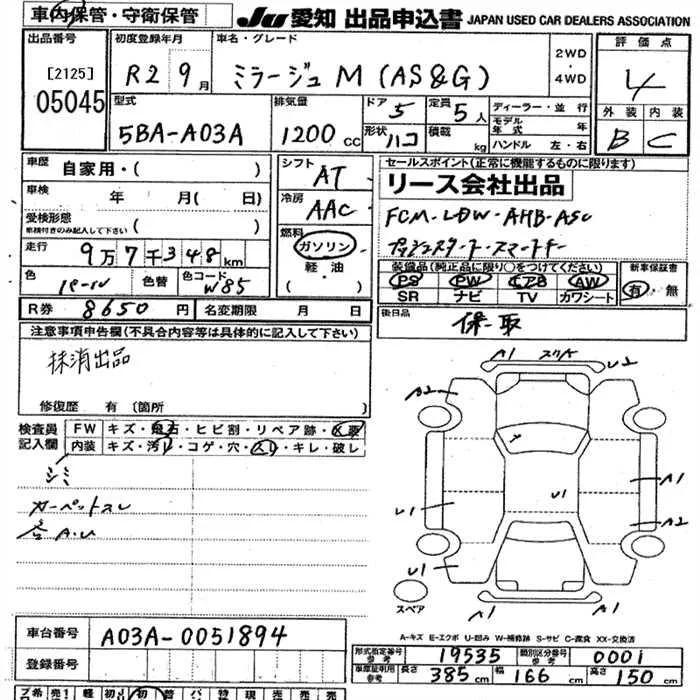 車内保管・守衛保管
JU 愛知 出品申込書 JAPAN USED CAR DEALERS ASSOCIATION
出品番号
[2125]
05045
初度登録年月
R2 9月
車名・グレード
ミラージュ M (AS&G)
2WD
・
4WD
評価点
4
外装 内装
B C
型式
5BA-A03A
排気量
1200 cc
ドア 5
定員 5人
形状 ハコ
積載 kg
ディーラー・並行
モデル年式 年
ハンドル 左・右
車歴 自家用・( )
車検 年 月( 日)
受検形態
車検付きのみ記入して下さい ( )
走行 9万7千348km
色 パール
色替
色コード W85
シフト
AT
冷房
AAC
燃料
ガソリン
軽油
( )
セールスポイント(正常に機能するものに限ります)
リース会社出品
FCM-LDW-AHB-ASC
プッシュスタート-スマートキー
装備品(純正品に限り○をつけてください)
PS PW エアB AW
SR ナビ TV カワシート
新車保証書
有・無
R券 8650円
名変期限 月 日
後日品
保-取
注意事項申告欄(不具合内容等は具体的に記入して下さい)
抹消出品
修復歴 有 〔箇所 〕
検査員記入欄
FW キズ・飛石・ヒビ割・リペア跡・
内装 キズ・汚レ・コゲ・穴・スレ・キレ・破レ
シミ
カーペットスレ
A.U
A1 スリキ U2
A2
U1
A1
A2
U1
U1
スペア
A1
A1
A-キズ E-エクボ U-凹み W-補修跡 S-サビ C-腐食 XX-交換済
車台番号 A03A-0051894
登録番号
形式指定番号 参考 19535
類別区分番号 参考 0001
車庫証明用 参考 長さ 385cm 幅 166cm 高さ 150cm